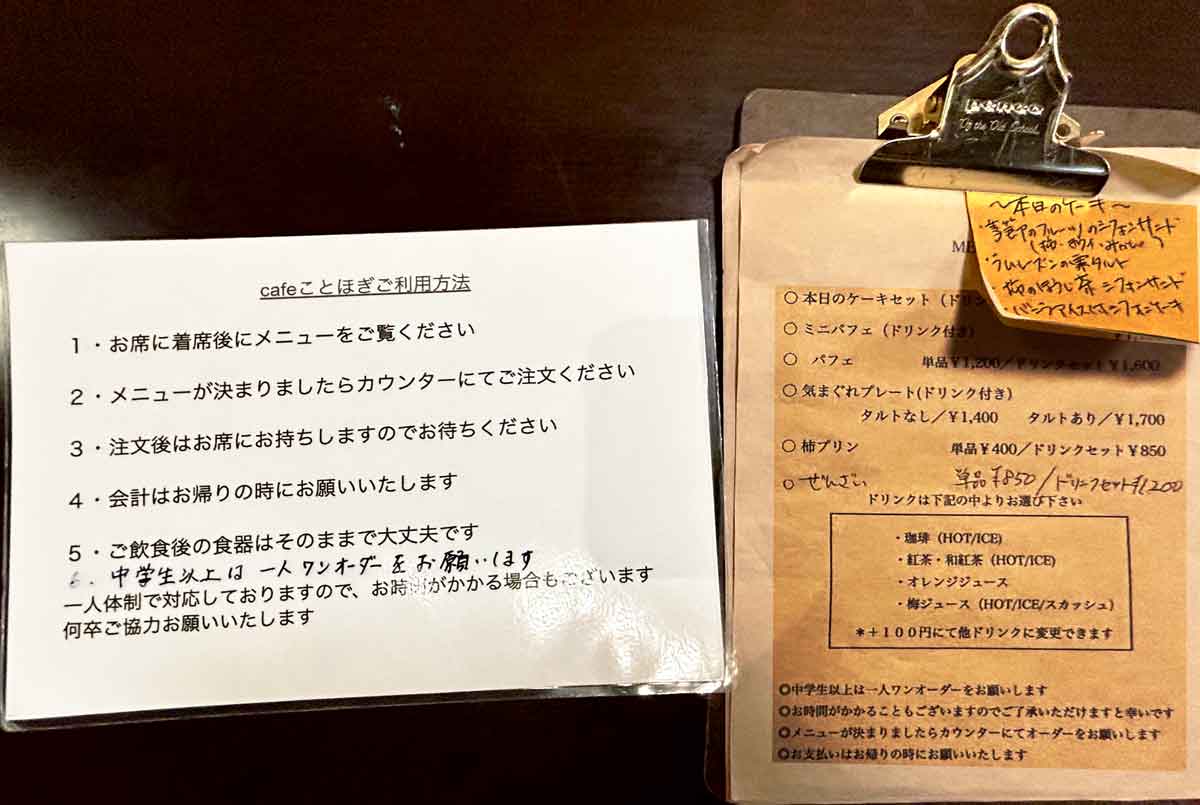 cafeことほぎご利用方法
1・お席に着席後にメニューをご覧ください
2・メニューが決まりましたらカウンターにてご注文ください
3・注文後はお席にお持ちしますのでお待ちください
4・会計はお帰りの時にお願いいたします
5・ご飲食後の食器はそのままで大丈夫です
6. 中学生以上は一人ワンオーダーをお願いします
一人体制で対応しておりますので、お時間がかかる場合もございます
何卒ご協力お願いいたします
Up the Old School
〜本日のケーキ〜
のフルーツのシフォンサンド
(柿・キウイ・みかん)
・ラムレーズンの栗タルト
ほうじ茶シフォンサンド
ME
○ 本日のケーキセット（ドリン
○ ミニパフェ（ドリンク付き）
○ パフェ 単品￥1,200／ドリンクセット￥1,600
○ 気まぐれプレート(ドリンク付き)
タルトなし／￥1,400 タルトあり／￥1,700
○ 柿プリン 単品￥400／ドリンクセット￥850
○ ぜんざい 単品￥850／ドリンクセット￥1200
ドリンクは下記の中よりお選び下さい
・珈琲（HOT/ICE)
・紅茶・和紅茶（HOT/ICE)
・オレンジジュース
・梅ジュース（HOT/ICE/スカッシュ）
＊＋１００円にて他ドリンクに変更できます
◎中学生以上は一人ワンオーダーをお願いします
◎お時間がかかることもございますのでご了承いただけますと幸いです
◎メニューが決まりましたらカウンターにてオーダーをお願いします
◎お支払いはお帰りの時にお願いいたします